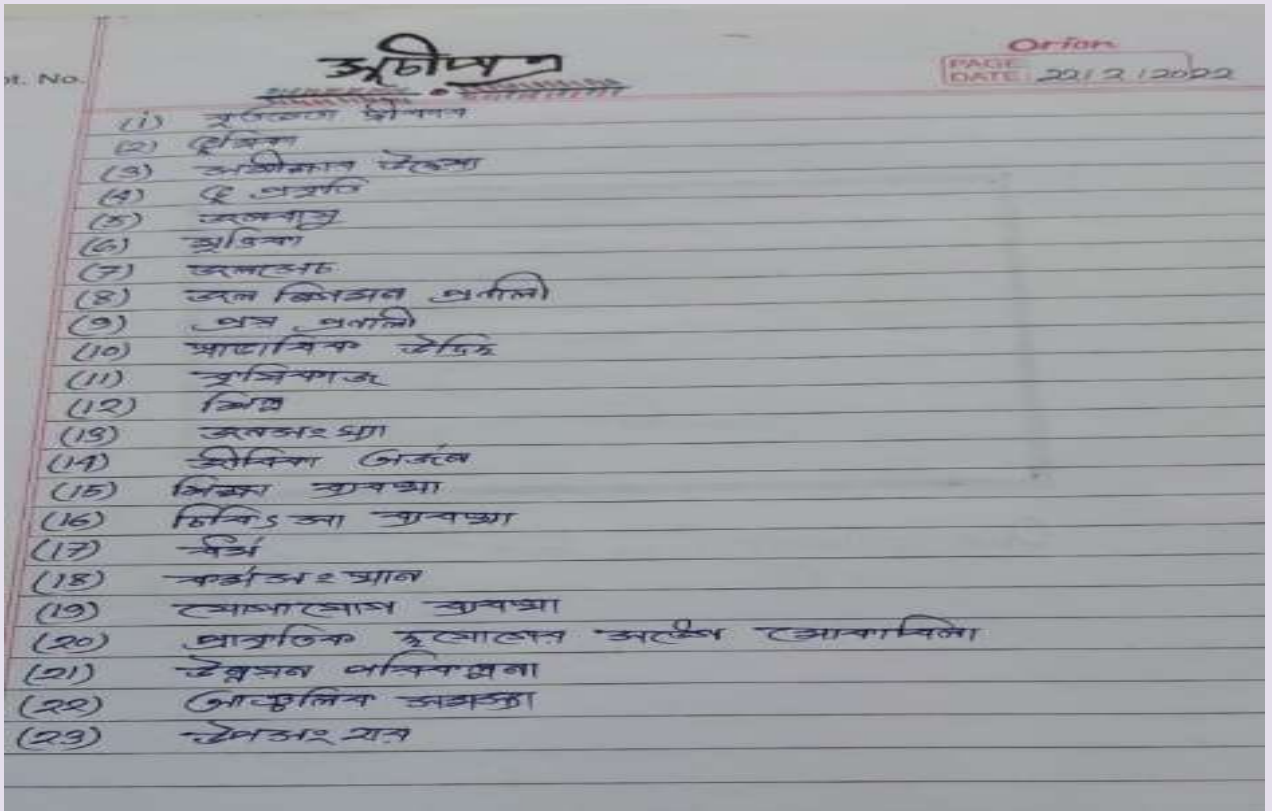 pt. No.
Orion
সূচীপত্র
PAGE
DATE: 22/2/2022
(1) কৃতজ্ঞতা স্বীকার
(2) ভূমিকা
(3) সমীক্ষার উদ্দেশ্য
(4) ভূ-প্রকৃতি
(5) জলবায়ু
(6) মৃত্তিকা
(7) জলসেচ
(8) জল নিষ্কাশন প্রণালী
(9)
(10) স্বাভাবিক উদ্ভিদ
(11) কৃষিকাজ
(12) শিল্প
(13) জনসংখ্যা
(14) জীবিকা অর্জন
(15) শিক্ষা ব্যবস্থা
(16) চিকিৎসা ব্যবস্থা
(17) ধর্ম
(18) কর্মসংস্থান
(19) যোগাযোগ ব্যবস্থা
(20) প্রাকৃতিক দুর্যোগের সঙ্গে মোকাবিলা
(21) উন্নয়ন পরিকল্পনা
(22) আঞ্চলিক সমস্যা
(23) উপসংহার